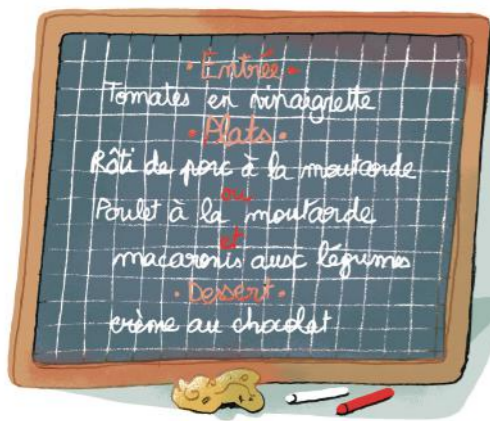 • Entrée •
Tomates en vinaigrette
• Plats •
Rôti de porc à la moutarde
ou
Poulet à la moutarde
et
macaronis aux légumes
• Dessert •
crème au chocolat